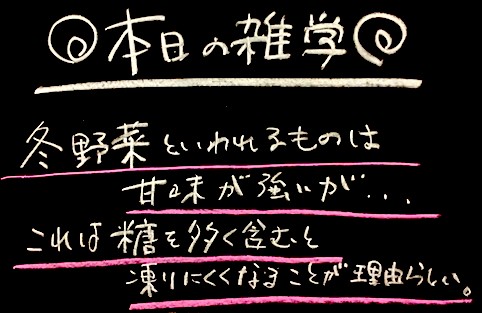 本日の雑学
冬野菜といわれるものは
甘味が強いが...
これは糖を多く含むと
凍りにくくなることが理由らしい。